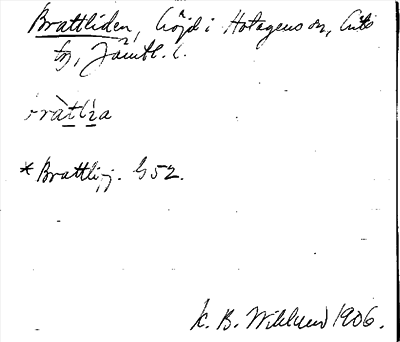 Brattliden, höjd i Hotagens sn, Lits
tg, Jämtl. l.
bràtlìa
*Brattlij. G 52.
K. B. Wiklund 1906.